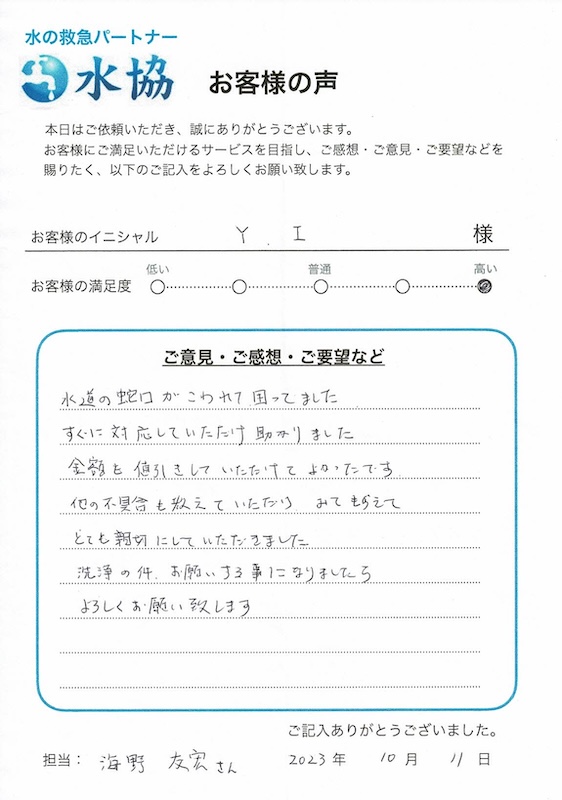 水の救急パートナー
水協 お客様の声
本日はご依頼いただき、誠にありがとうございます。
お客様にご満足いただけるサービスを目指し、ご感想・ご意見・ご要望などを
賜りたく、以下のご記入をよろしくお願い致します。
お客様のイニシャル Y . I 様
低い 普通 高い
お客様の満足度
ご意見・ご感想・ご要望など
水道の蛇口がこわれて困ってました
すぐに対応していただけ助かりました
金額も値引きしていただけてよかったです
他の不具合も教えていただけ みてもらえて
とても親切にしていただきました
洗浄の件、お願いする事になりましたら
よろしくお願い致します
ご記入ありがとうございました。
担当： 海野 友宏さん 2023年 10月 11日